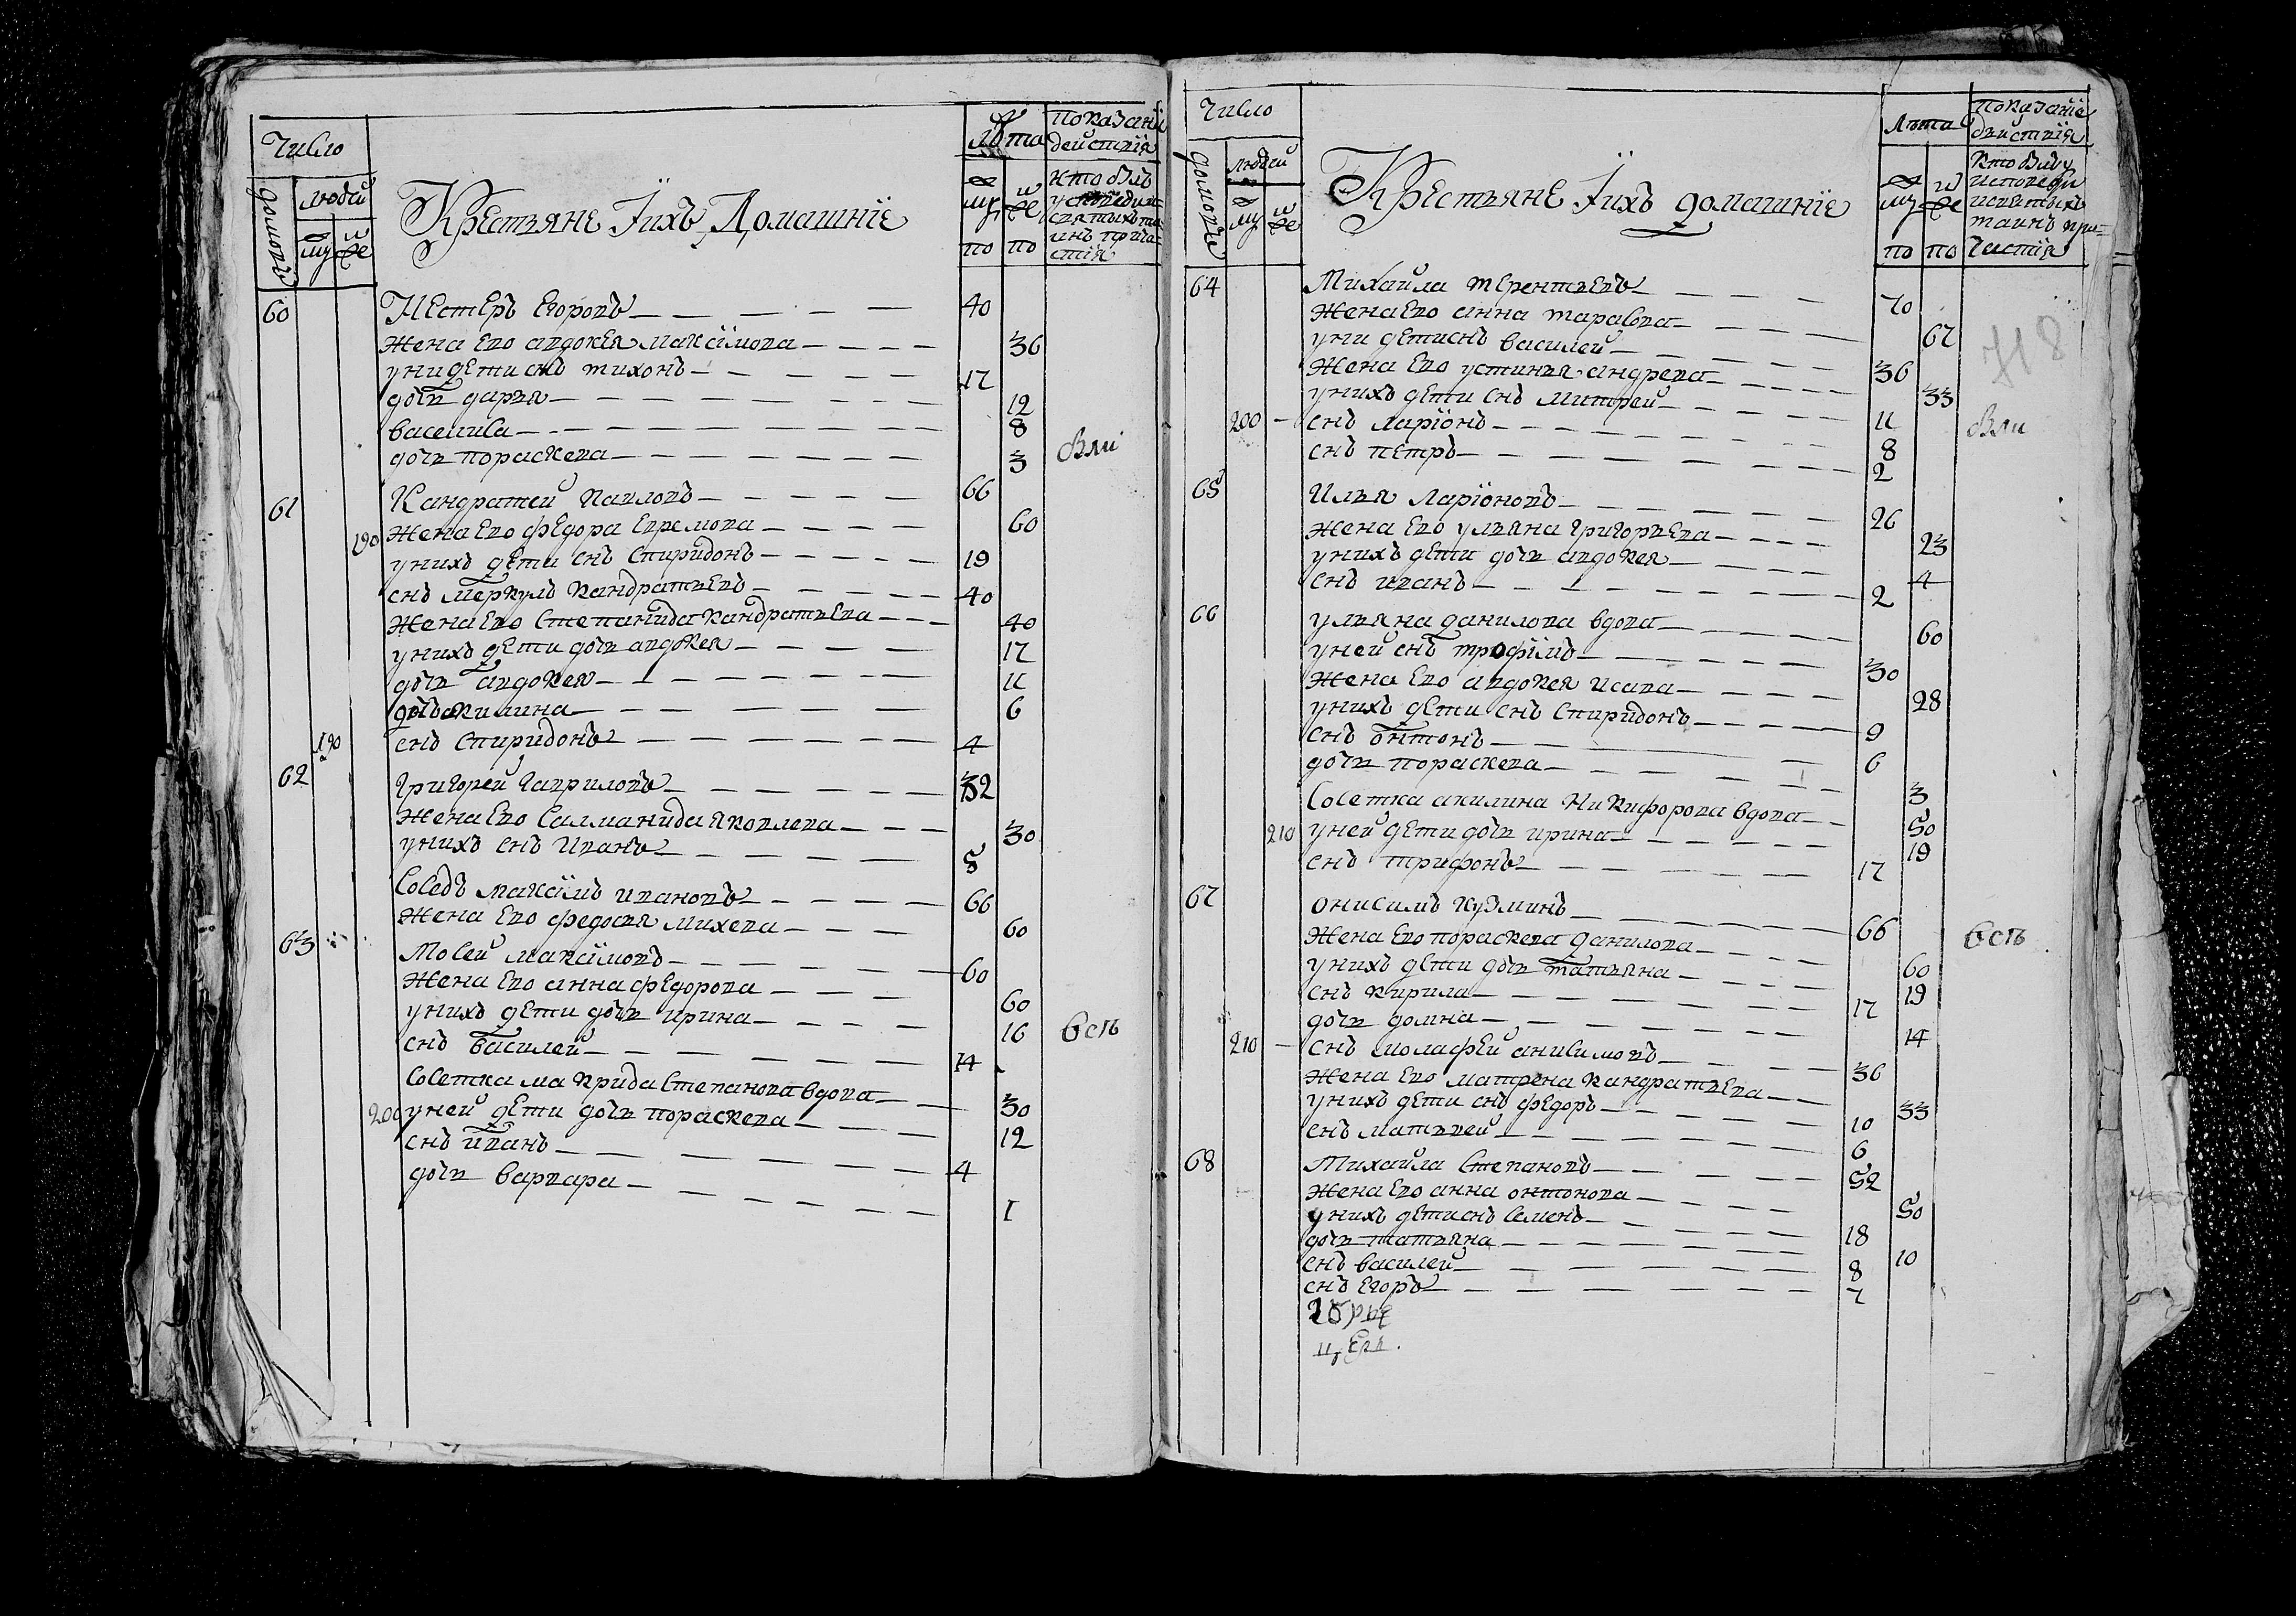 Число
домовъ
людей
му
же
Крестьяне Їихъ Домашнїе
лѣта
му
же
по
по
показанї
действїя
кто былъ
у исповеди и
святыхъ та
инъ прича
стїя
60 Нестеръ Егоровъ 40
жена Ево авдокея максимова 36
у ни дети снъ тихонъ 17
дочь дарья 12
васелиса 8
дочь пораскева 3
были
61 Кандратей павловъ 66
190 жена Ево федора Ефремова 60
у нихъ дети снъ Спиридонъ 19
снъ меркулъ кандратьевъ 40
жена Ево Степанида кандратьева 40
у нихъ дети дочь авдокея 17
дочь авдокея 11
дочь акилина 6
190 снъ Спиридонъ 4
62 Григорей Гавриловъ 32
жена Ево Салманида яковлева 30
у нихъ снъ Иванъ 5
Соседъ максимъ ивановъ 66
жена Ево федосья михева 60
63 Мосей максимовъ 60
жена Ево анна федорова 60
у нихъ дети дочь ирина 16
бслъ
снъ василей 14
Соsетка макрида Степанова вдова 30
200 у ней дети дочь пораскева 12
снъ иванъ 4
дочь варвара 1
Число
домовъ
людей
му
же
Крестьяне Їихъ домашнїе
лѣта
му
же
по
по
показанїе
дѣйствїя
кто былъ у
исповеди
исвятыхъ
таинъ при-
частїя
64 Михаила терентьевъ 70
жена Ево анна тарасова 67
у ни дети снъ василей 36
жена Ево устинья андрева 33
у нихъ дети снъ митрей 11
200 снъ ларїонъ 8
были
снъ петръ 2
65 Илья ларїоновъ 26
жена Ево ульяна григорьева 23
у нихъ дети дочь авдокея 4
снъ иванъ 2
66 ульяна данилова вдова 60
у ней снъ трофимъ 30
жена Ево авдокея исаева 28
у нихъ дети снъ Спиридонъ 9
снъ онтонъ 6
дочь пораскева 3
Соsетка акилина никифорова вдова 50
210 у ней дети дочь ирина 19
снъ трифонъ 17
67 онисимъ кузминъ 66
бслъ
жена Ево пораскева данилова 60
у нихъ дети дочь татьяна 19
снъ кирила 17
дочь домна 14
210 снъ малафей анисимовъ 36
жена Ево матрена кандратьева 33
у нихъ дети снъ федоръ 10
снъ матьвей 6
68 Михаила Степановъ 52
жена Ево анна онтонова 50
у нихъ дети снъ Семенъ 18
дочь татьяна 10
снъ василей 8
снъ Егоръ 7